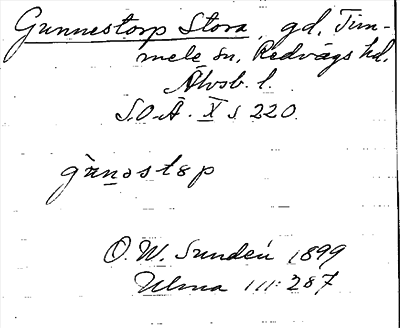 Gunnestorp Stora, gd, Tim-
mele sn, Redvägs hd.
Älvsb. l.
S.O.Ä. X s. 220.
gùnəstɵp
O.W. Sundén 1899
Ulma 111:287